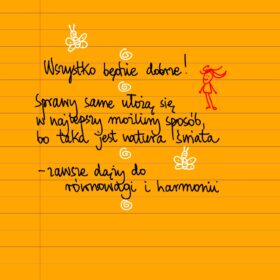 Wszystko będzie dobrze!
Sprawy same ułożą się
w najlepszy możliwy sposób,
bo taka jest natura świata
- zawsze dąży do
równowagi i harmonii